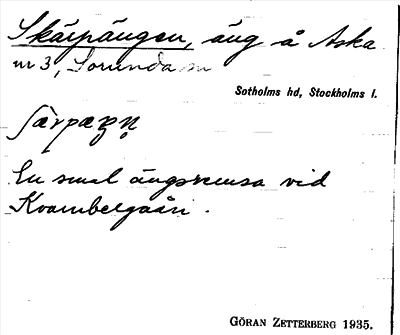 Skärpängen, äng å Aska
nr 3, Sorunda sn
Sotholms hd, Stockholms l.
En smal ängsremsa vid
Kvambelgaån.
GÖRAN ZETTERBERG 1935.